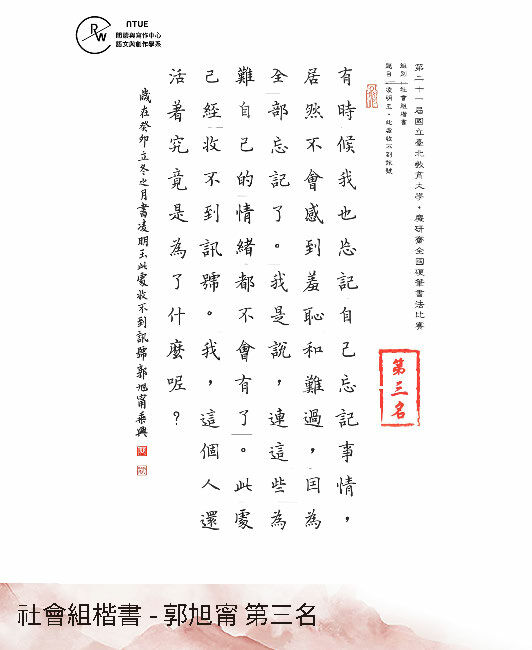 RW
NTUE
閱讀與寫作中心
語文與創作學系
第二十一屆國立臺北教育大學‧慶研齋全國硬筆書法比賽
組別：社會組楷書
題目：凌明玉‧此處收不到訊號
第三名
有時候我也忘記自己忘記事情，
居然不會感到羞恥和難過，因為
全部忘記了。我是說，連這些為
難自己的情緒都不會有了。此處
已經收不到訊號。我，這個人還
活著究竟是為了什麼呢？
歲在癸卯立冬之月書凌明玉此處收不到訊號郭旭甯乘興
社會組楷書 - 郭旭甯 第三名